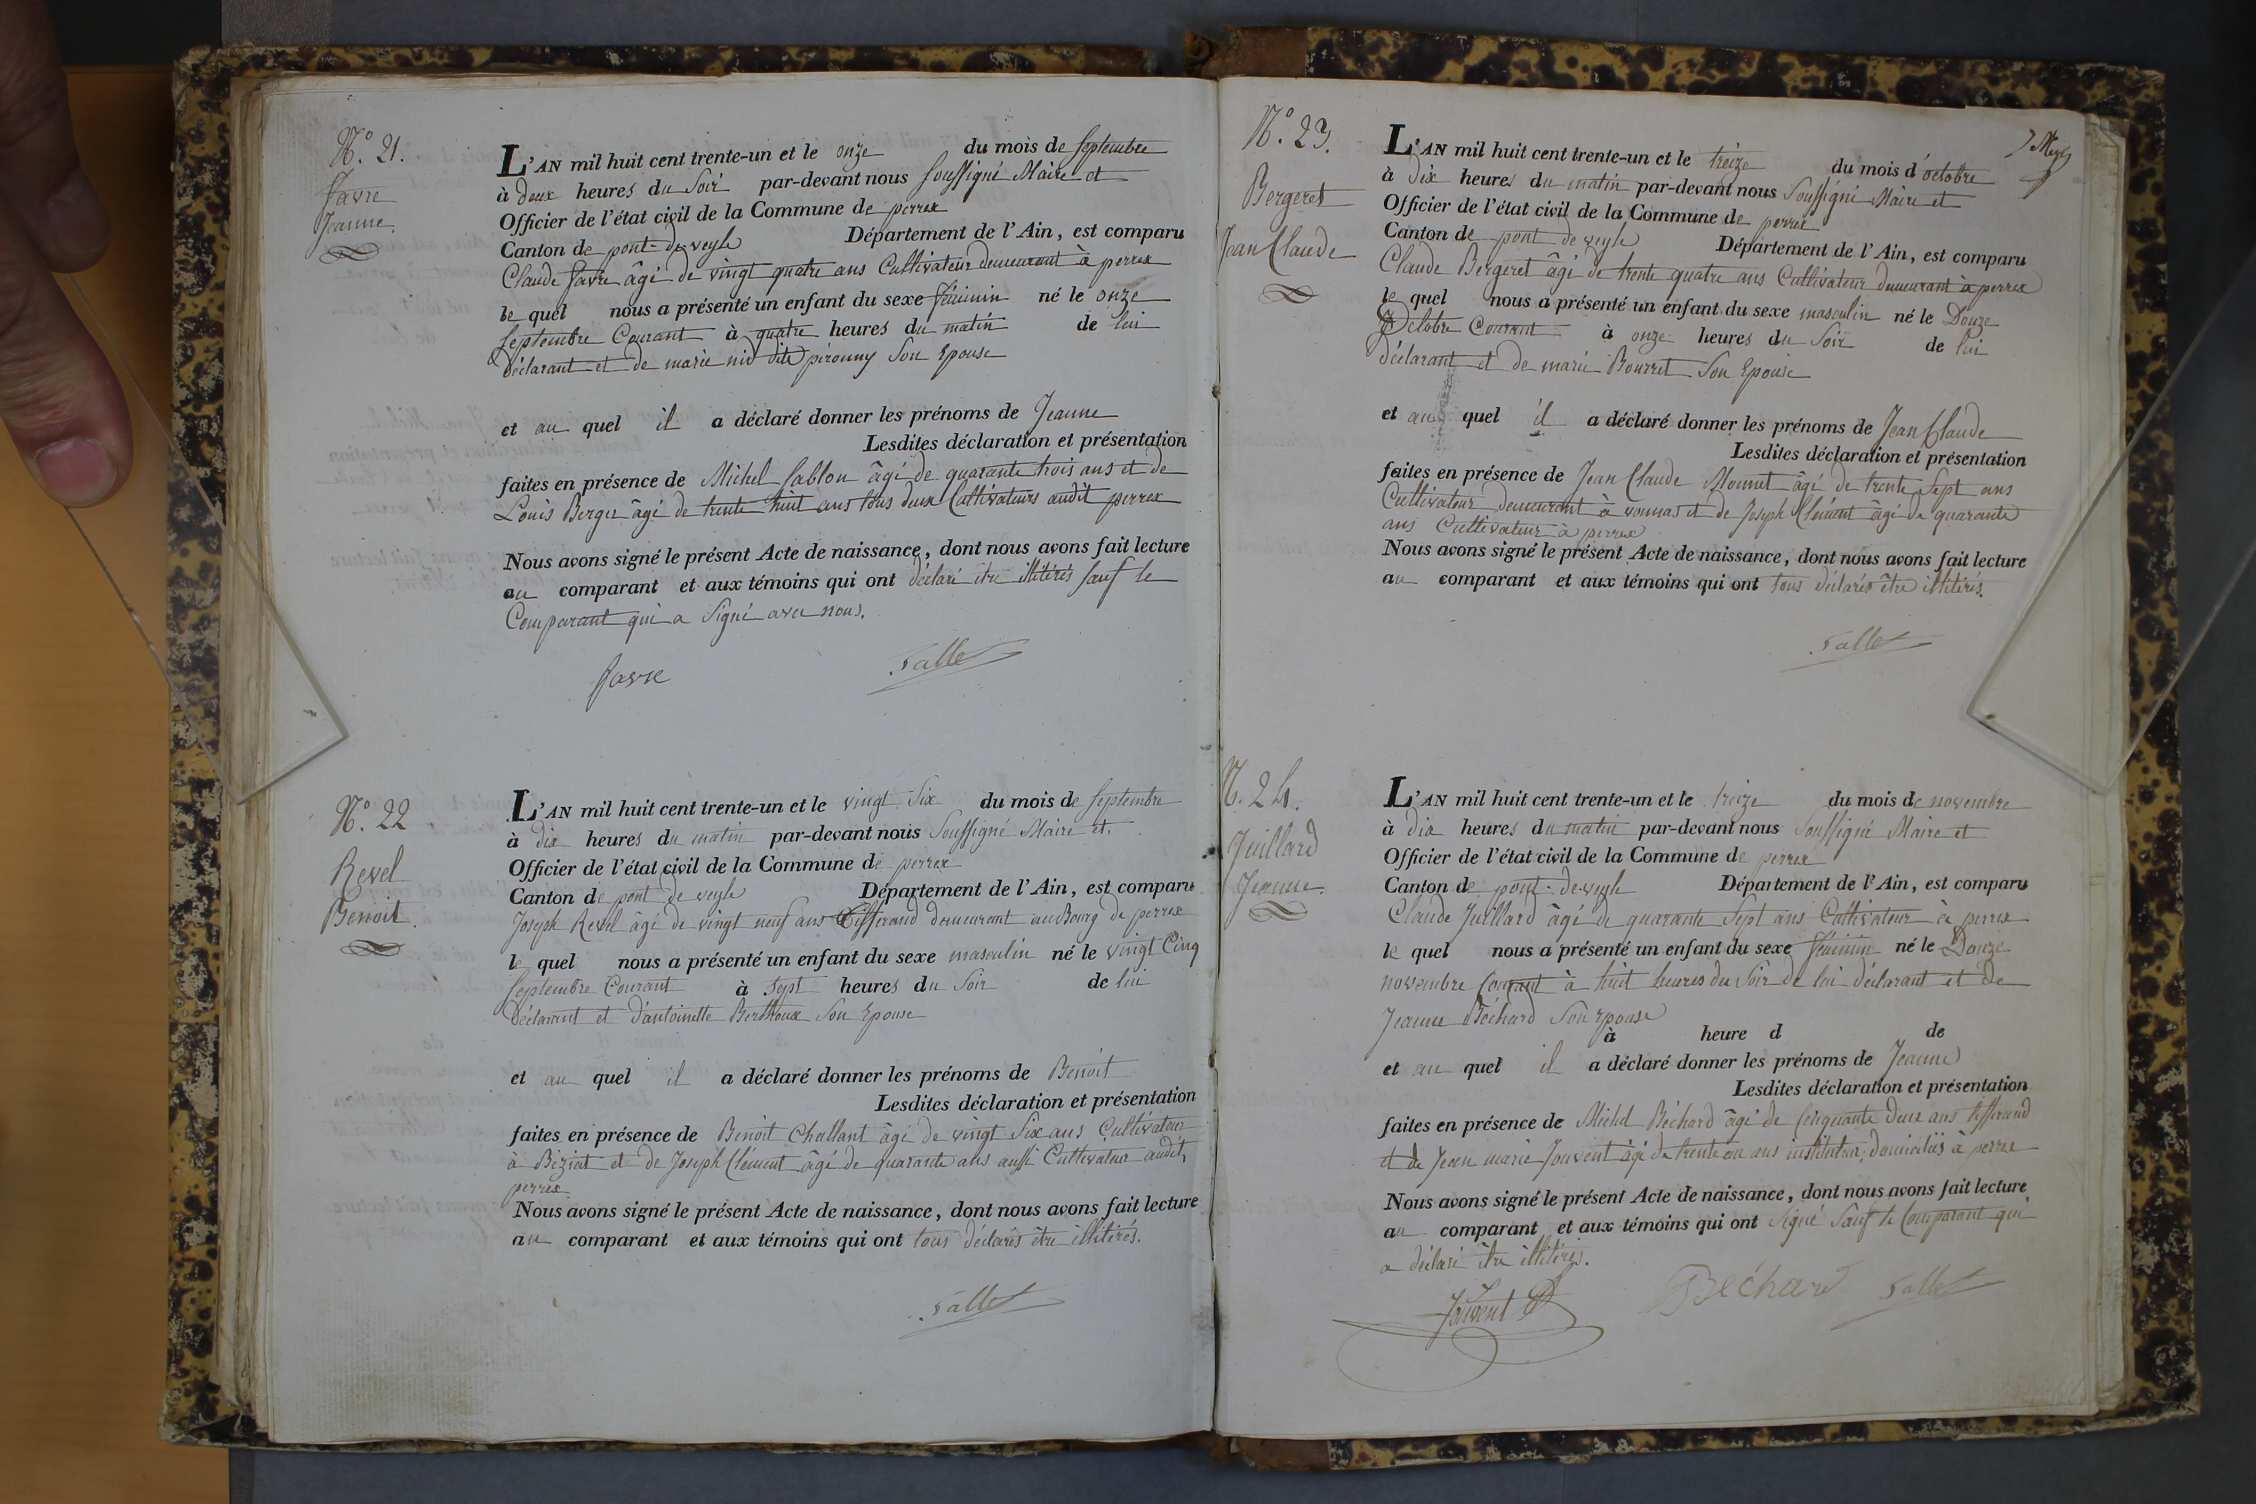 N.° 21.
Favre
Jeanne.
L'AN mil huit cent trente-un et le onze du mois de Septembre
à deux heures du Soir par-devant nous Soussigné Maire et
Officier de l'état civil de la Commune de perrex
Canton de pont-de-veyle Département de l'Ain, est comparu
Claude favre âgé de vingt quatre ans Cultivateur demeurant à perrex
le quel nous a présenté un enfant du sexe féminin né le onze
Septembre Courant à quatre heures du matin de lui
déclarant et de marie dite pérouny Son Epouse
et au quel il a déclaré donner les prénoms de Jeanne
Lesdites déclaration et présentation
faites en présence de Michel Sablon âgé de quarante trois ans et de
Louis Berger âgé de trente huit ans tous deux Cultivateurs audit perrex
Nous avons signé le présent Acte de naissance, dont nous avons fait lecture
au comparant et aux témoins qui ont déclaré être illitérés Sauf le
Comparant qui a Signé avec nous.
favre Sallet
N.° 22
Revel
Benoit.
L'AN mil huit cent trente-un et le vingt Six du mois de Septembre
à dix heures du matin par-devant nous Soussigné Maire et
Officier de l'état civil de la Commune de perrex
Canton de pont de veyle Département de l'Ain, est comparu
Joseph Revel âgé de vingt neuf ans Tifferand demeurant au Bourg de perrex
le quel nous a présenté un enfant du sexe masculin né le vingt Cinq
Septembre Courant à Sept heures du Soir de lui
déclarant et d'antoinette Berthoux Son Epouse
et au quel il a déclaré donner les prénoms de Benoit
Lesdites déclaration et présentation
faites en présence de Benoit Challant âgé de vingt Six ans Cultivateur
à Béziat et de Joseph Clément âgé de quarante ans aussi Cultivateur audit
perrex
Nous avons signé le présent Acte de naissance, dont nous avons fait lecture
au comparant et aux témoins qui ont tous déclarés être illitérés.
Sallet
7
N.° 23.
Bergeret
Jean Claude
L'AN mil huit cent trente-un et le treize du mois d'octobre
à dix heures du matin par-devant nous Soussigné Maire et
Officier de l'état civil de la Commune de perrex
Canton de pont de veyle Département de l'Ain, est comparu
Claude Bergeret âgé de trente quatre ans Cultivateur demeurant à perrex
le quel nous a présenté un enfant du sexe masculin né le Douze
Octobre Courant à onze heures du Soir de lui
déclarant et de marie Bourret Son Epouse
et au quel il a déclaré donner les prénoms de Jean Claude
Lesdites déclaration et présentation
faites en présence de Jean Claude Monnet âgé de trente Sept ans
Cultivateur demeurant à vonnas et de Joseph Clément âgé de quarante
ans Cultivateur à perrex
Nous avons signé le présent Acte de naissance, dont nous avons fait lecture
au comparant et aux témoins qui ont tous déclarés être illitérés.
Sallet
N. 24.
Juillard
Jeanne.
L'AN mil huit cent trente-un et le treize du mois de novembre
à dix heures du matin par-devant nous Soussigné Maire et
Officier de l'état civil de la Commune de perrex
Canton de pont-de-veyle Département de l'Ain, est comparu
Claude Juillard âgé de quarante Sept ans Cultivateur à perrex
le quel nous a présenté un enfant du sexe féminin né le Douze
novembre Courant à huit heures du Soir de lui déclarant et de
Jeanne Béchard Son Epouse
à heure d de
et au quel il a déclaré donner les prénoms de Jeanne
Lesdites déclaration et présentation
faites en présence de Michel Béchard âgé de Cinquante deux ans tifferand
et de Jean marie Jouvent âgé de trente ans instituteur, domiciliés à perrex
Nous avons signé le présent Acte de naissance, dont nous avons fait lecture
au comparant et aux témoins qui ont Signé Sauf le Comparant qui
a déclaré être illitérés.
Jouvent Béchard Sallet